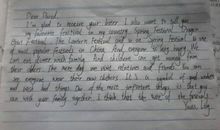 Dear David,
I'm glad to receive your letter. I also want to tell you
my favourite festival in my country. Spring Festival, Dragon
Boat Festival, The Lantern Festival and so on. Spring Festival is one
of most popular festivals in China. And everyone is very happy. We
eat dinner with family. And children can get money from
their olders. The next day we visit relatives and friends. In the
everyone wear their new clothes. It is a symbol of good wishes
and bad things. One of the most important things is that you
can with your family together. I think that the
Yours,